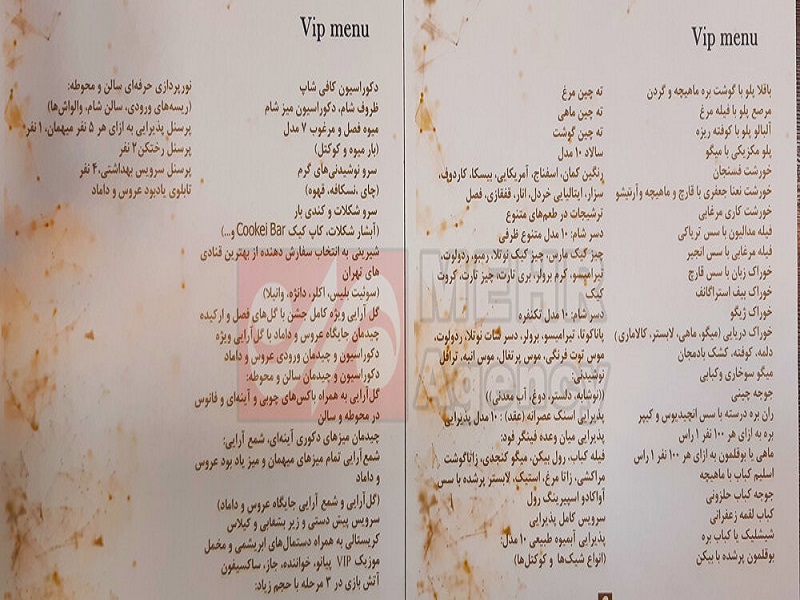 Vip menu
باقلا پلو با گوشت بره ماهیچه و گردن
مرصع پلو با فیله مرغ
آلبالو پلو با کوفته ریزه
پلو مکزیکی با میگو
خورشت فسنجان
خورشت نعنا جعفری با قارچ و ماهیچه و آرتیشو
خورشت کاری مرغابی
فیله مدالیون با سس تریاکی
فیله مرغابی با سس انجیر
خوراک زبان با سس قارچ
خوراک بیف استراگانف
خوراک زیگو
خوراک دریایی (میگو، ماهی، لابستر، کالاماری)
دلمه، کوفته، کشک بادمجان
میگو سوخاری و کبابی
جوجه چینی
ران بره درسته با سس انچیدیوس و کیپر
بره به ازای هر ۱۰۰ نفر ۱ راس
ماهی یا بوقلمون به ازای هر ۱۰۰ نفر ۱ راس
اسلیم کباب با ماهیچه
جوجه کباب حلزونی
کباب لقمه زعفرانی
شیشلیک یا کباب بره
بوقلمون پرشده با بیکن
ته چین مرغ
ته چین ماهی
ته چین گوشت
سالاد ۱۰ مدل
رنگین کمان، اسفناج، آمریکایی، بیسکا، کاردوف،
سزار، ایتالیایی خردل، انار، قفقازی، فصل
ترشیجات در طعم‌های متنوع
دسر شام: ۱۰ مدل متنوع ظرفی
چیز کیک مارس، چیز کیک نوتلا، رمبو، ردولوت،
تیرامیسو، کرم برولر، بری تارت، چیز تارت، کروت
کیک
دسر شام: ۱۰ مدل تکنفره
پاناکوتا، تیرامیسو، برولر، دسر شات نوتلا، ردولوت،
موس توت فرنگی، موس پرتغال، موس انبه، ترافل
نوشیدنی:
((نوشابه، دلستر، دوغ، آب معدنی))
پذیرایی اسنک عصرانه (عقد) : ۱۰ مدل پذیرایی
پذیرایی میان وعده فینگر فود:
فیله کباب، رول بیکن، میگو کنجدی، زاناگوشت
مراکشی، زانا مرغ، استیک، لابستر پرشده با سس
آواکادو اسپیرینگ رول
سرویس کامل پذیرایی
پذیرایی آبمیوه طبیعی ۱۰ مدل:
(انواع شیک‌ها و کوکتل‌ها)
Vip menu
دکوراسیون کافی شاپ
ظروف شام، دکوراسیون میز شام
میوه فصل و مرغوب ۷ مدل
(بار میوه و کوکتل)
سرو نوشیدنی‌های گرم
(چای ،نسکافه، قهوه)
سرو شکلات و کندی بار
(آبشار شکلات، کاپ کیک Cookei Bar و...)
شیرینی به انتخاب سفارش دهنده از بهترین قنادی
های تهران
(سوئیت بلیس، اکلر، دانژه، وانیلا)
گل آرایی ویژه کامل جشن با گل‌های فصل و ارکیده
چیدمان جایگاه عروس و داماد با گل‌آرایی ویژه
دکوراسیون و چیدمان ورودی عروس و داماد
دکوراسیون و چیدمان سالن و محوطه:
گل‌آرایی به همراه باکس‌های چوبی و آینه‌ای و فانوس
در محوطه و سالن
چیدمان میزهای دکوری آینه‌ای، شمع آرایی:
شمع‌آرایی تمام میزهای میهمان و میز یاد بود عروس
و داماد
(گل‌آرایی و شمع آرایی جایگاه عروس و داماد)
سرویس پیش دستی و زیر بشقابی و گیلاس
کریستالی به همراه دستمال‌های ابریشمی و مخمل
موزیک VIP پیانو، خواننده، جاز، ساکسیفون
آتش بازی در ۳ مرحله با حجم زیاد:
نورپردازی حرفه‌ای سالن و محوطه:
(ریسه‌های ورودی، سالن شام، والواش‌ها)
پرسنل پذیرایی به ازای هر ۵ نفر میهمان، ۱ نفر
پرسنل رختکن ۲ نفر
پرسنل سرویس بهداشتی،۴ نفر
تابلوی یادبود عروس و داماد
MEHR
Agency